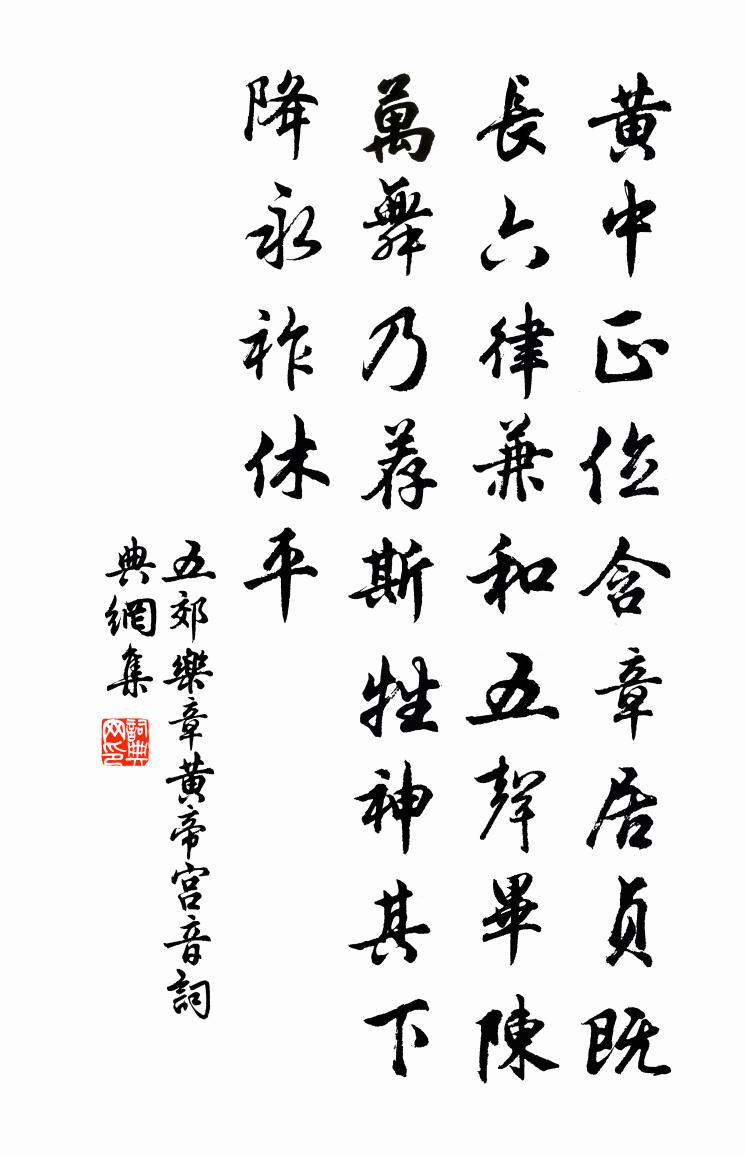 黃中正位含章居貞既
長六律兼和五聲畢陳
萬舞乃荐斯牲神其下
降永祚休平
五郊樂章黃帝宮音詞
典網集
詞典網印